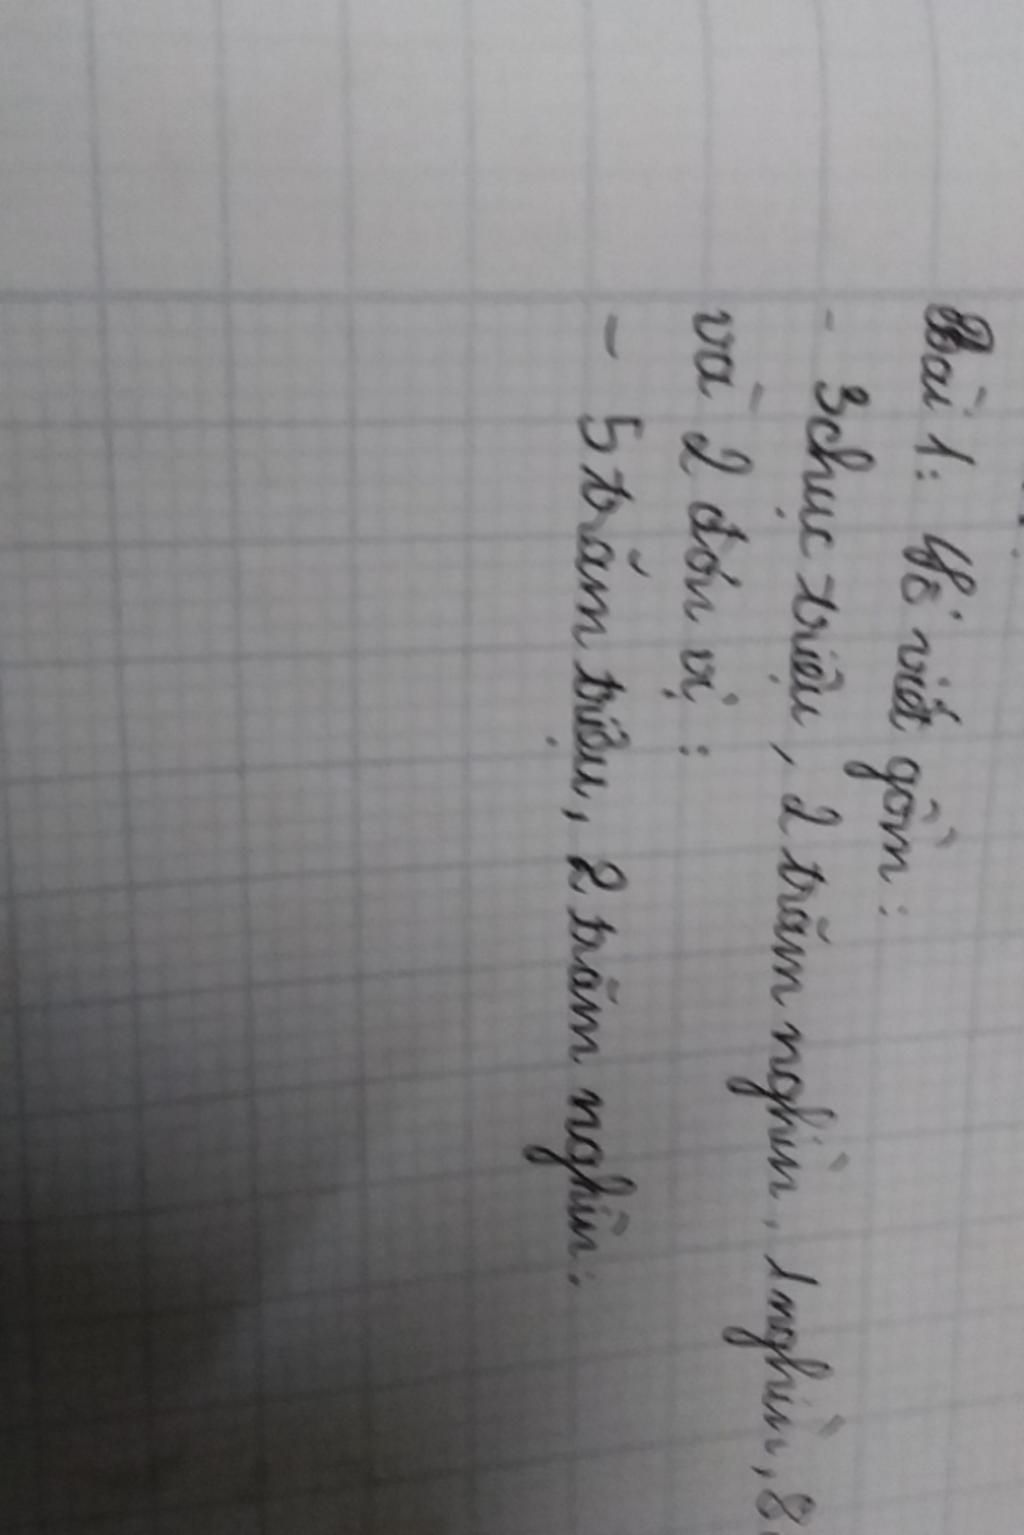 Bài 1: Số viết gồm:
- 3 chục triệu, 2 trăm nghìn, 1 nghìn, 8
và 2 đơn vị:
- 5 trăm triệu, 2 trăm nghìn: